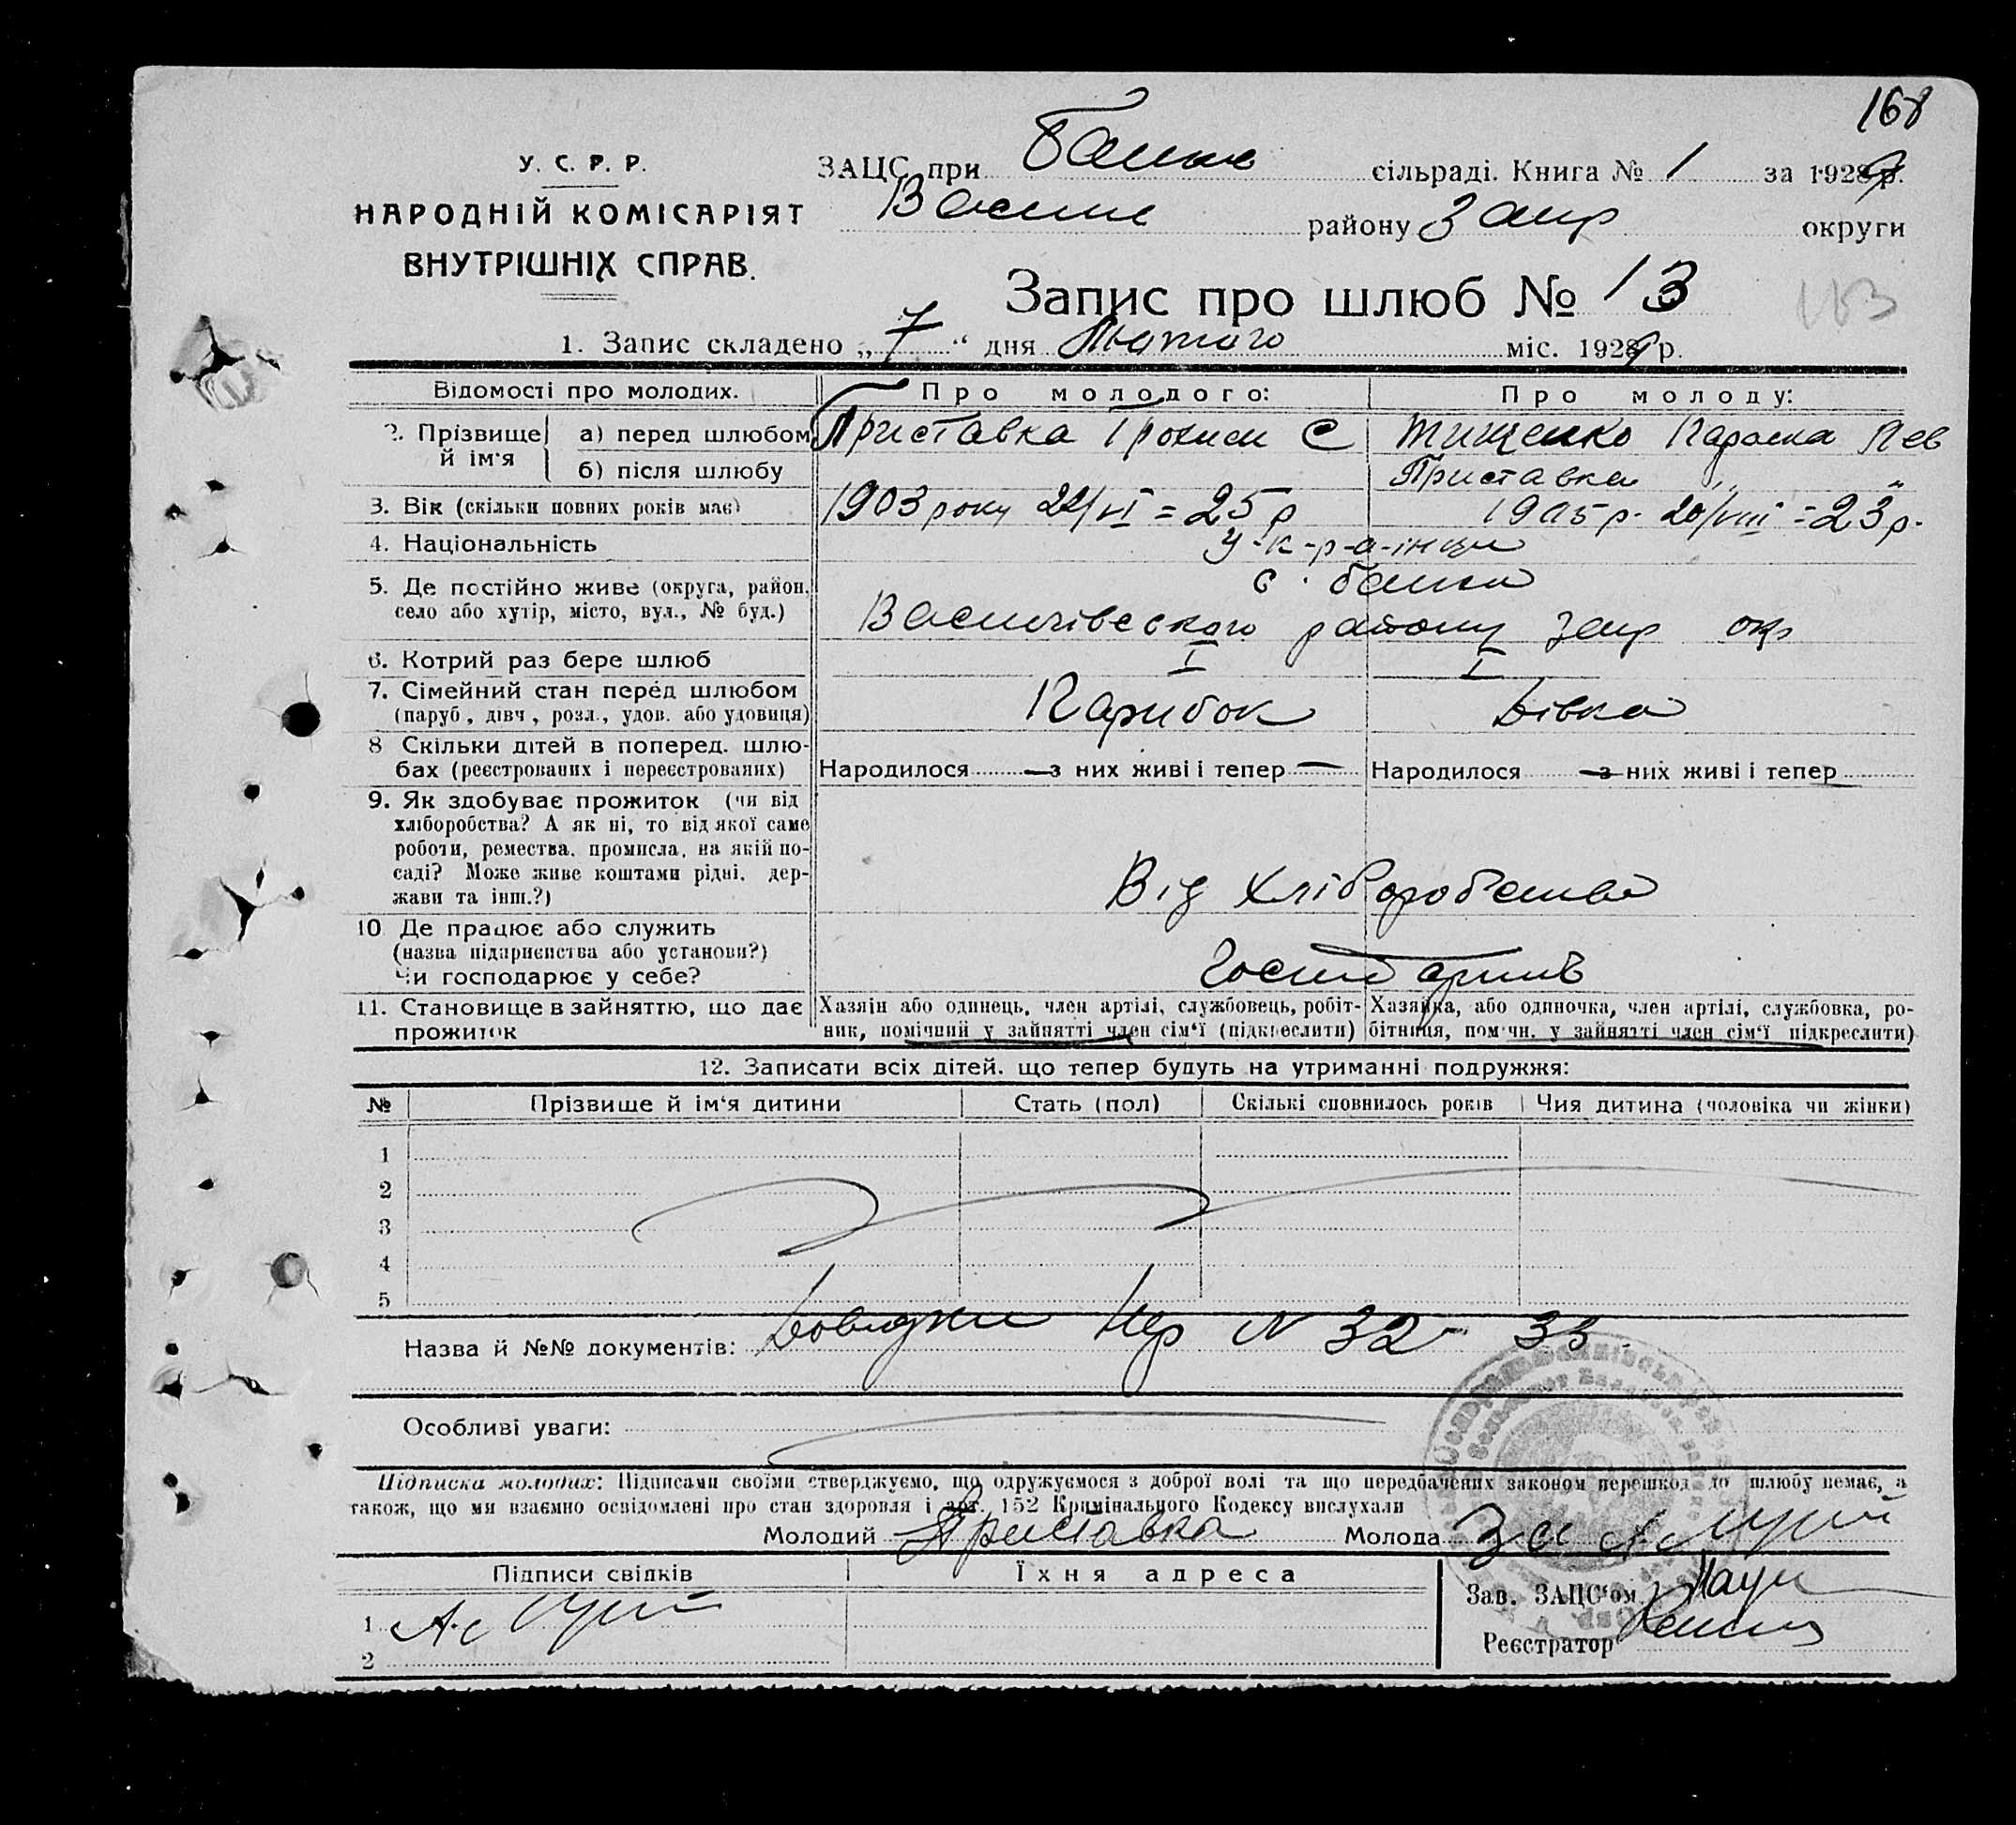 168
У. С. Р. Р.
НАРОДНІЙ КОМІСАРІЯТ
ВНУТРІШНІХ СПРАВ.
ЗАЦС при сільраді. Книга № 1 за 1929 р.
району Запр округи
Запис про шлюб № 13
1. Запис складено „7“ дня Лютого міс. 1929 р.
Відомості про молодих. Про молодого: Про молоду:
2. Прізвище й ім'я а) перед шлюбом Приставка С Тищенко Параска Лев
б) після шлюбу Приставка „ „
3. Вік (скільки повних років має) 1903 року 22/VI = 25 р 1905 р. 20/VIII = 23 р.
4. Національність У-к-р-а-інци
5. Де постійно живе (округа, район,
село або хутір, місто, вул., № буд.) Василівського району Запр окр
6. Котрий раз бере шлюб I I
7. Сімейний стан перед шлюбом
(паруб, дівч, розл., удов. або удовиця) Парубок Дівка
8 Скільки дітей в поперед. шлю-
бах (реєстрованих і нереєстрованих) Народилося — з них живі і тепер — Народилося — з них живі і тепер —
9. Як здобуває прожиток (чи від
хліборобства? А як ні, то від якої саме
роботи, ремества, промисла, на якій по-
саді? Може живе коштами рідні, дер-
жави та інш.?) Від хліборобства
10 Де працює або служить
(назва підприємства або установи?)
Чи господарює у себе?
11. Становище в зайняттю, що дає
прожиток
Хазяін або одинець, член артілі, службовець, робіт-
ник, помічний у зайнятті член сім'ї (підкреслити)
Хазяйка, або одиночка, член артілі, службовка, ро-
бітниця, помічн. у зайнятті член сім'ї підкреслити)
12. Записати всіх дітей, що тепер будуть на утриманні подружжя:
№ Прізвище й ім'я дитини Стать (пол) Скількі сповнилось років Чия дитина (чоловіка чи жінки)
1
2
3
4
5
Назва й №№ документів: Довидки N 32 - 33.
Особливі уваги:
Підписка молодих: Підписами своїми стверджуємо, що одружуємося з доброї волі та що передбачених законом перешкод до шлюбу немає, а
також, що ми взаємно освідомлені про стан здоровля і арт. 152 Кримінального Кодексу вислухали
Молодий Приставка Молода
Підписи свідків Їхня адреса
Зав. ЗАЦС'ом
1
Реєстратор
2